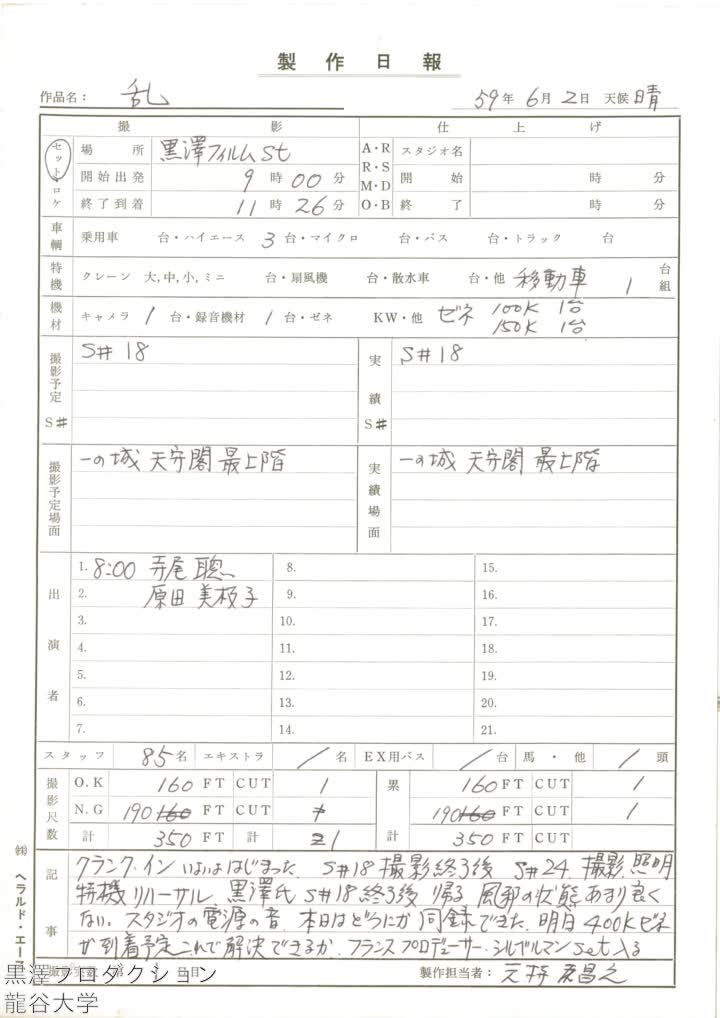 製作日報
作品名： 乱 59年 6月 2日 天候 晴
撮影 仕上げ
セット・ロケ 場所 黒澤フィルムSt A・R R・S M・D O・B スタジオ名
開始出発 9時00分 開始 時 分
終了到着 11時26分 終了 時 分
車輌 乗用車 台・ハイエース 3台・マイクロ 台・バス 台・トラック 台
特機 クレーン 大,中,小,ミニ 台・扇風機 台・散水車 台・他 移動車 1 台組
機材 キャメラ 1台・録音機材 1台・ゼネ KW・他 ゼネ 100K 1台
150K 1台
撮影予定S# S#18 実績S# S#18
撮影予定場面 一の城 天守閣 最上階 実績場面 一の城 天守閣 最上階
出演者 1. 8:00 寺尾聰 8. 15.
2. 原田美枝子 9. 16.
3. 10. 17.
4. 11. 18.
5. 12. 19.
6. 13. 20.
7. 14. 21.
スタッフ 85名 エキストラ / 名 EX用バス / 台 馬・他 / 頭
撮影尺数 O.K 160 FT CUT 1 累計 160 FT CUT 1
N.G 190 160 FT CUT 190 160 FT CUT 1
計 350 FT 計 1 350 FT CUT
記事 クランク・イン いよいよはじまった. S#18 撮影終了後 S#24 撮影.照明
特機 リハーサル. 黒澤氏 S#18終了後 帰る 風邪の状態あまり良く
ない. スタジオの電源の音. 本日はどうにか同録できた. 明日400Kゼネ
が到着予定 これで解決できるか. フランスプロデューサー・シルベルマン set入る
撮影実数 第 日目 製作担当者：
㈱ ヘラルド・エース
黒澤プロダクション
龍谷大学